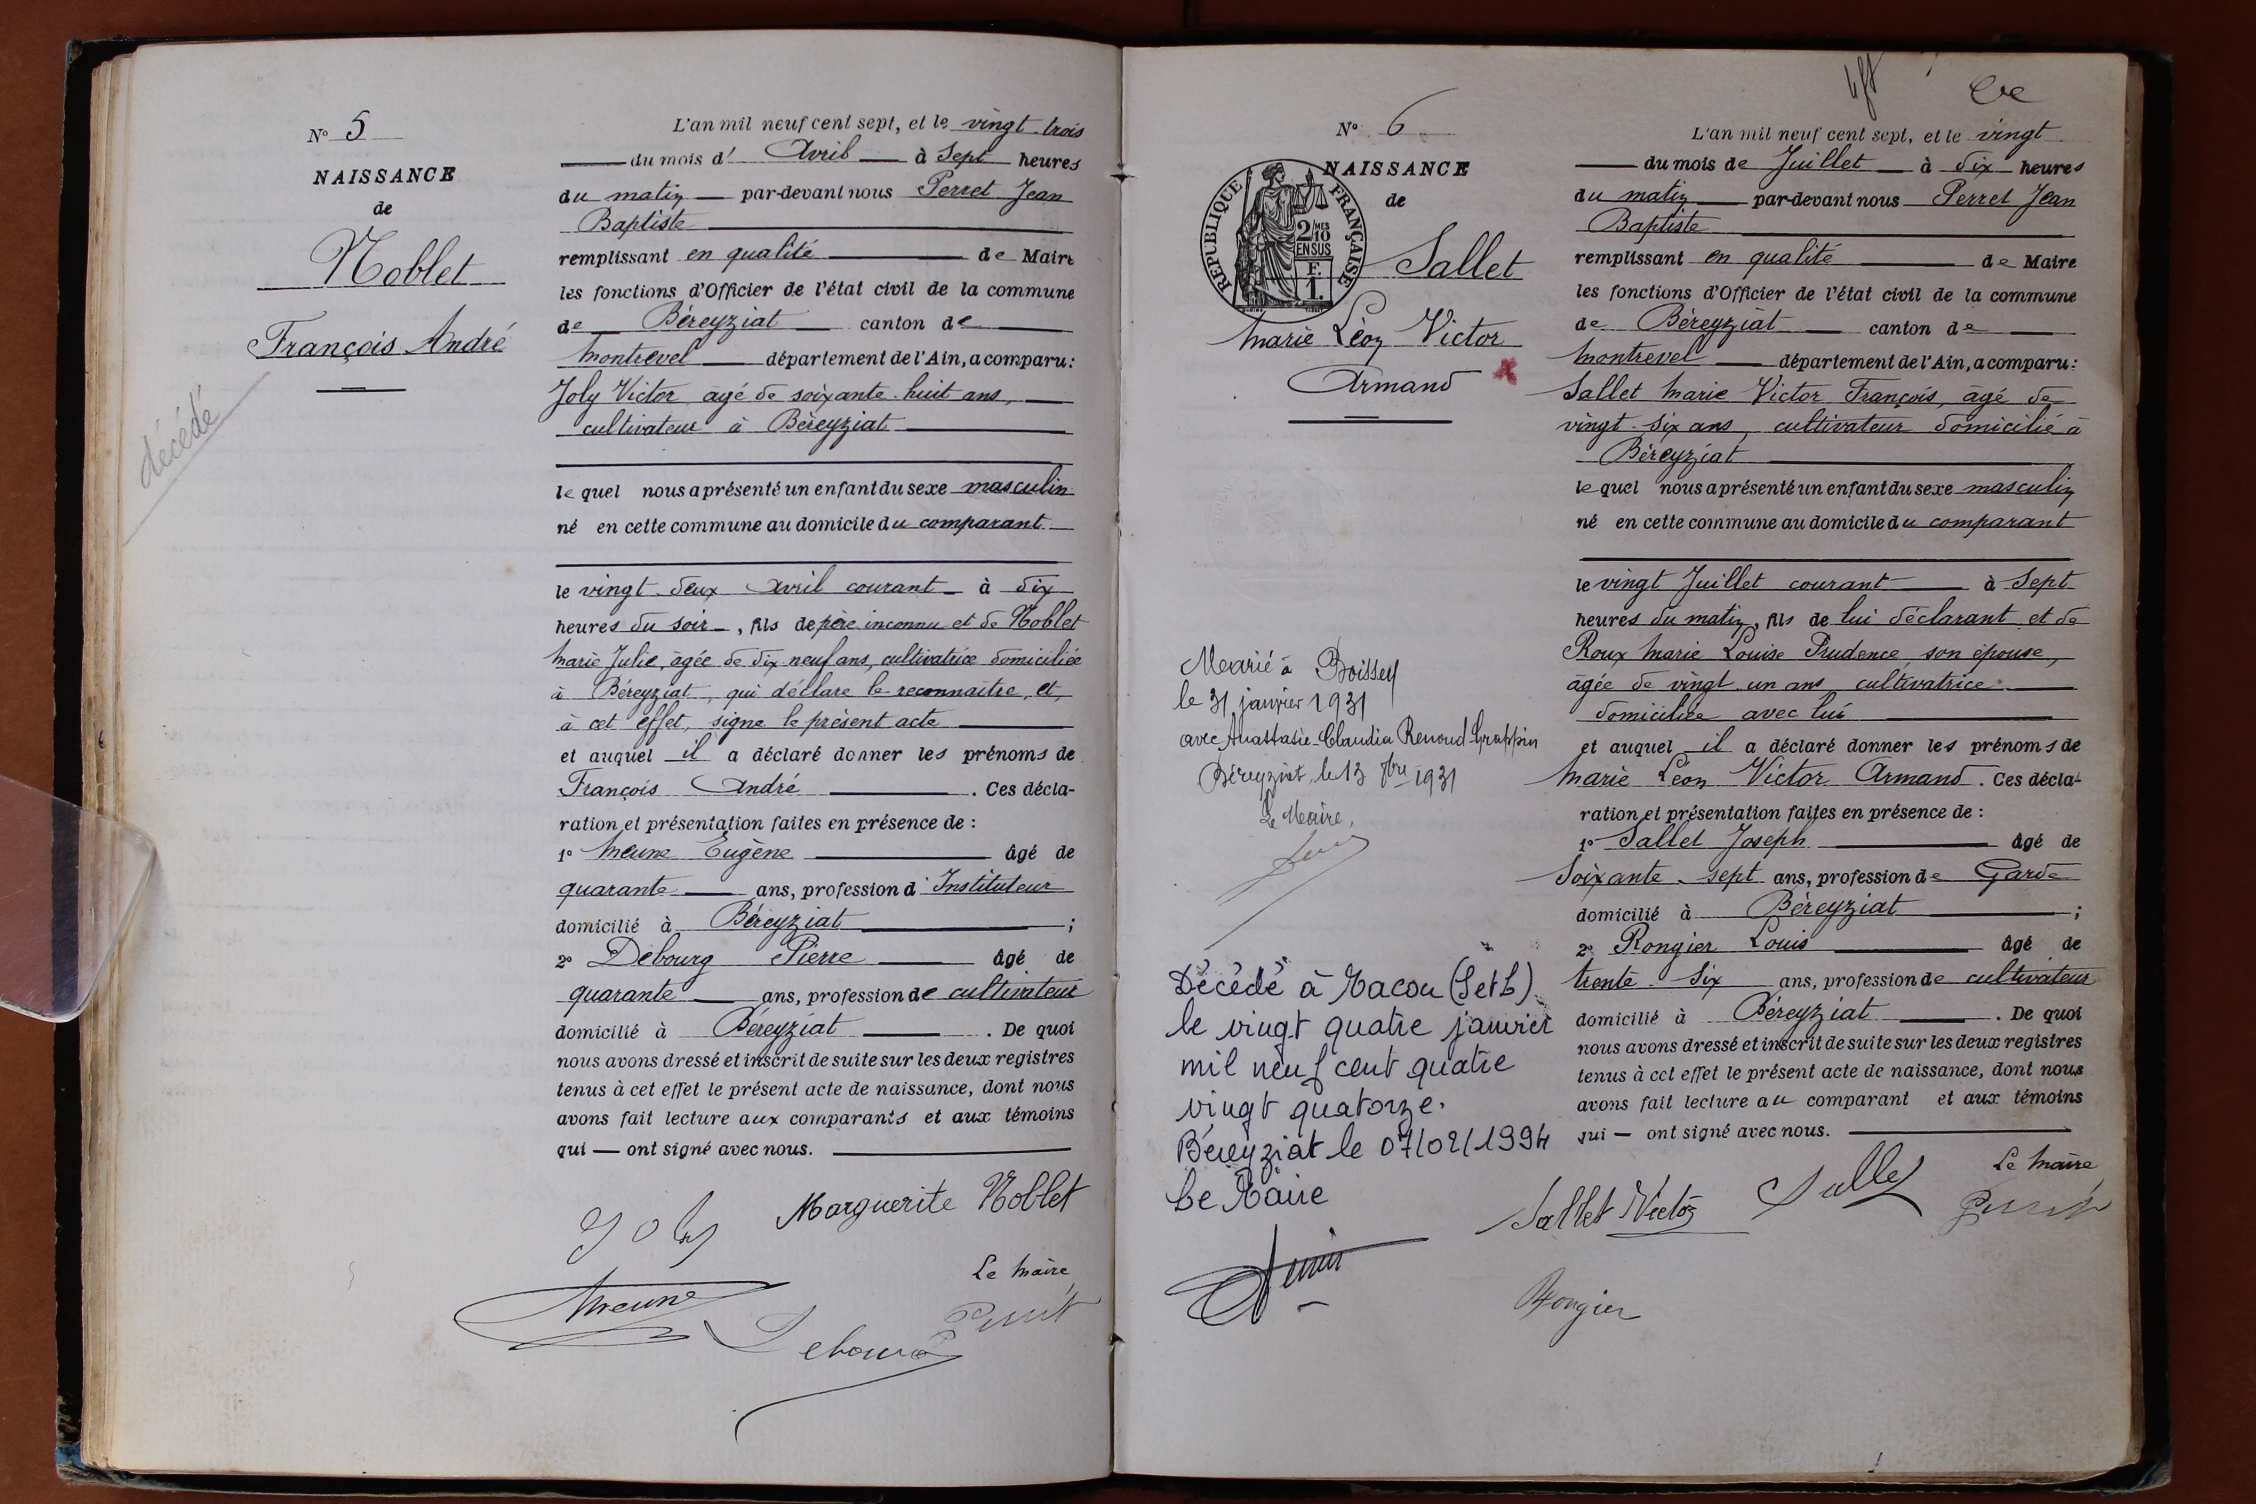 N° 5
NAISSANCE
de
Noblet
François André
décédé
L'an mil neuf cent sept, et le vingt trois
du mois d' Avril à Sept heures
du matin par-devant nous Perret Jean
Baptiste
remplissant en qualité de Maire
les fonctions d'Officier de l'état civil de la commune
de Béreyziat canton de
Montrevel département de l'Ain, a comparu :
Joly Victor âgé de soixante-huit ans,
cultivateur à Béreyziat
lequel nous a présenté un enfant du sexe masculin
né en cette commune au domicile du comparant
le vingt-deux Avril courant à dix
heures du soir, fils de père inconnu et de Noblet
Marie Julie, âgée de dix neuf ans, cultivatrice domiciliée
à Béreyziat, qui déclare le reconnaître, et,
à cet effet, signe le présent acte
et auquel il a déclaré donner les prénoms de
François André. Ces décla-
ration et présentation faites en présence de :
1° Meune Eugène âgé de
quarante ans, profession d'Instituteur
domicilié à Béreyziat ;
2° Debourg Pierre âgé de
quarante ans, profession de cultivateur
domicilié à Béreyziat. De quoi
nous avons dressé et inscrit de suite sur les deux registres
tenus à cet effet le présent acte de naissance, dont nous
avons fait lecture aux comparants et aux témoins
qui — ont signé avec nous.
Joly Marguerite Noblet
Le Maire
Meune Perret
Debourg
N° 6
NAISSANCE
de
REPUBLIQUE FRANÇAISE
2/10 MES
EN SUS
F.
1.
Sallet
Marie Léon Victor
Armand
Marié à Boissey
le 31 janvier 1931
avec Anastasie-Claudia Renoud-Grappin
Béreyziat, le 13 1931
Le Maire,
Décédé à Macon (S et L)
le vingt quatre janvier
mil neuf cent quatre
vingt quatorze.
Béreyziat le 07/02/1994
Le Maire
L'an mil neuf cent sept, et le vingt
du mois de Juillet à dix heures
du matin par-devant nous Perret Jean
Baptiste
remplissant en qualité de Maire
les fonctions d'Officier de l'état civil de la commune
de Béreyziat canton de
Montrevel département de l'Ain, a comparu :
Sallet Marie Victor François, âgé de
vingt-six ans, cultivateur domicilié à
Béreyziat
lequel nous a présenté un enfant du sexe masculin
né en cette commune au domicile du comparant
le vingt Juillet courant à Sept
heures du matin, fils de lui déclarant et de
Roux Marie Louise Prudence son épouse,
âgée de vingt un ans cultivatrice
domiciliée avec lui
et auquel il a déclaré donner les prénoms de
Marie Léon Victor Armand. Ces décla-
ration et présentation faites en présence de :
1° Sallet Joseph âgé de
Soixante-sept ans, profession de Garde
domicilié à Béreyziat ;
2° Rongier Louis âgé de
trente-six ans, profession de cultivateur
domicilié à Béreyziat. De quoi
nous avons dressé et inscrit de suite sur les deux registres
tenus à cet effet le présent acte de naissance, dont nous
avons fait lecture au comparant et aux témoins
qui — ont signé avec nous.
Le Maire
Sallet Victor Sallet Perret
Rongier